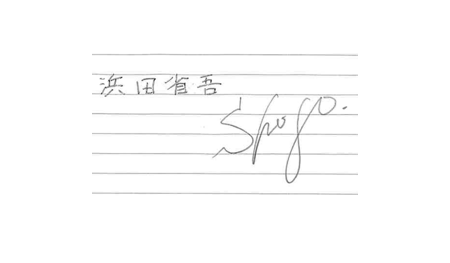 浜田省吾
Shogo.